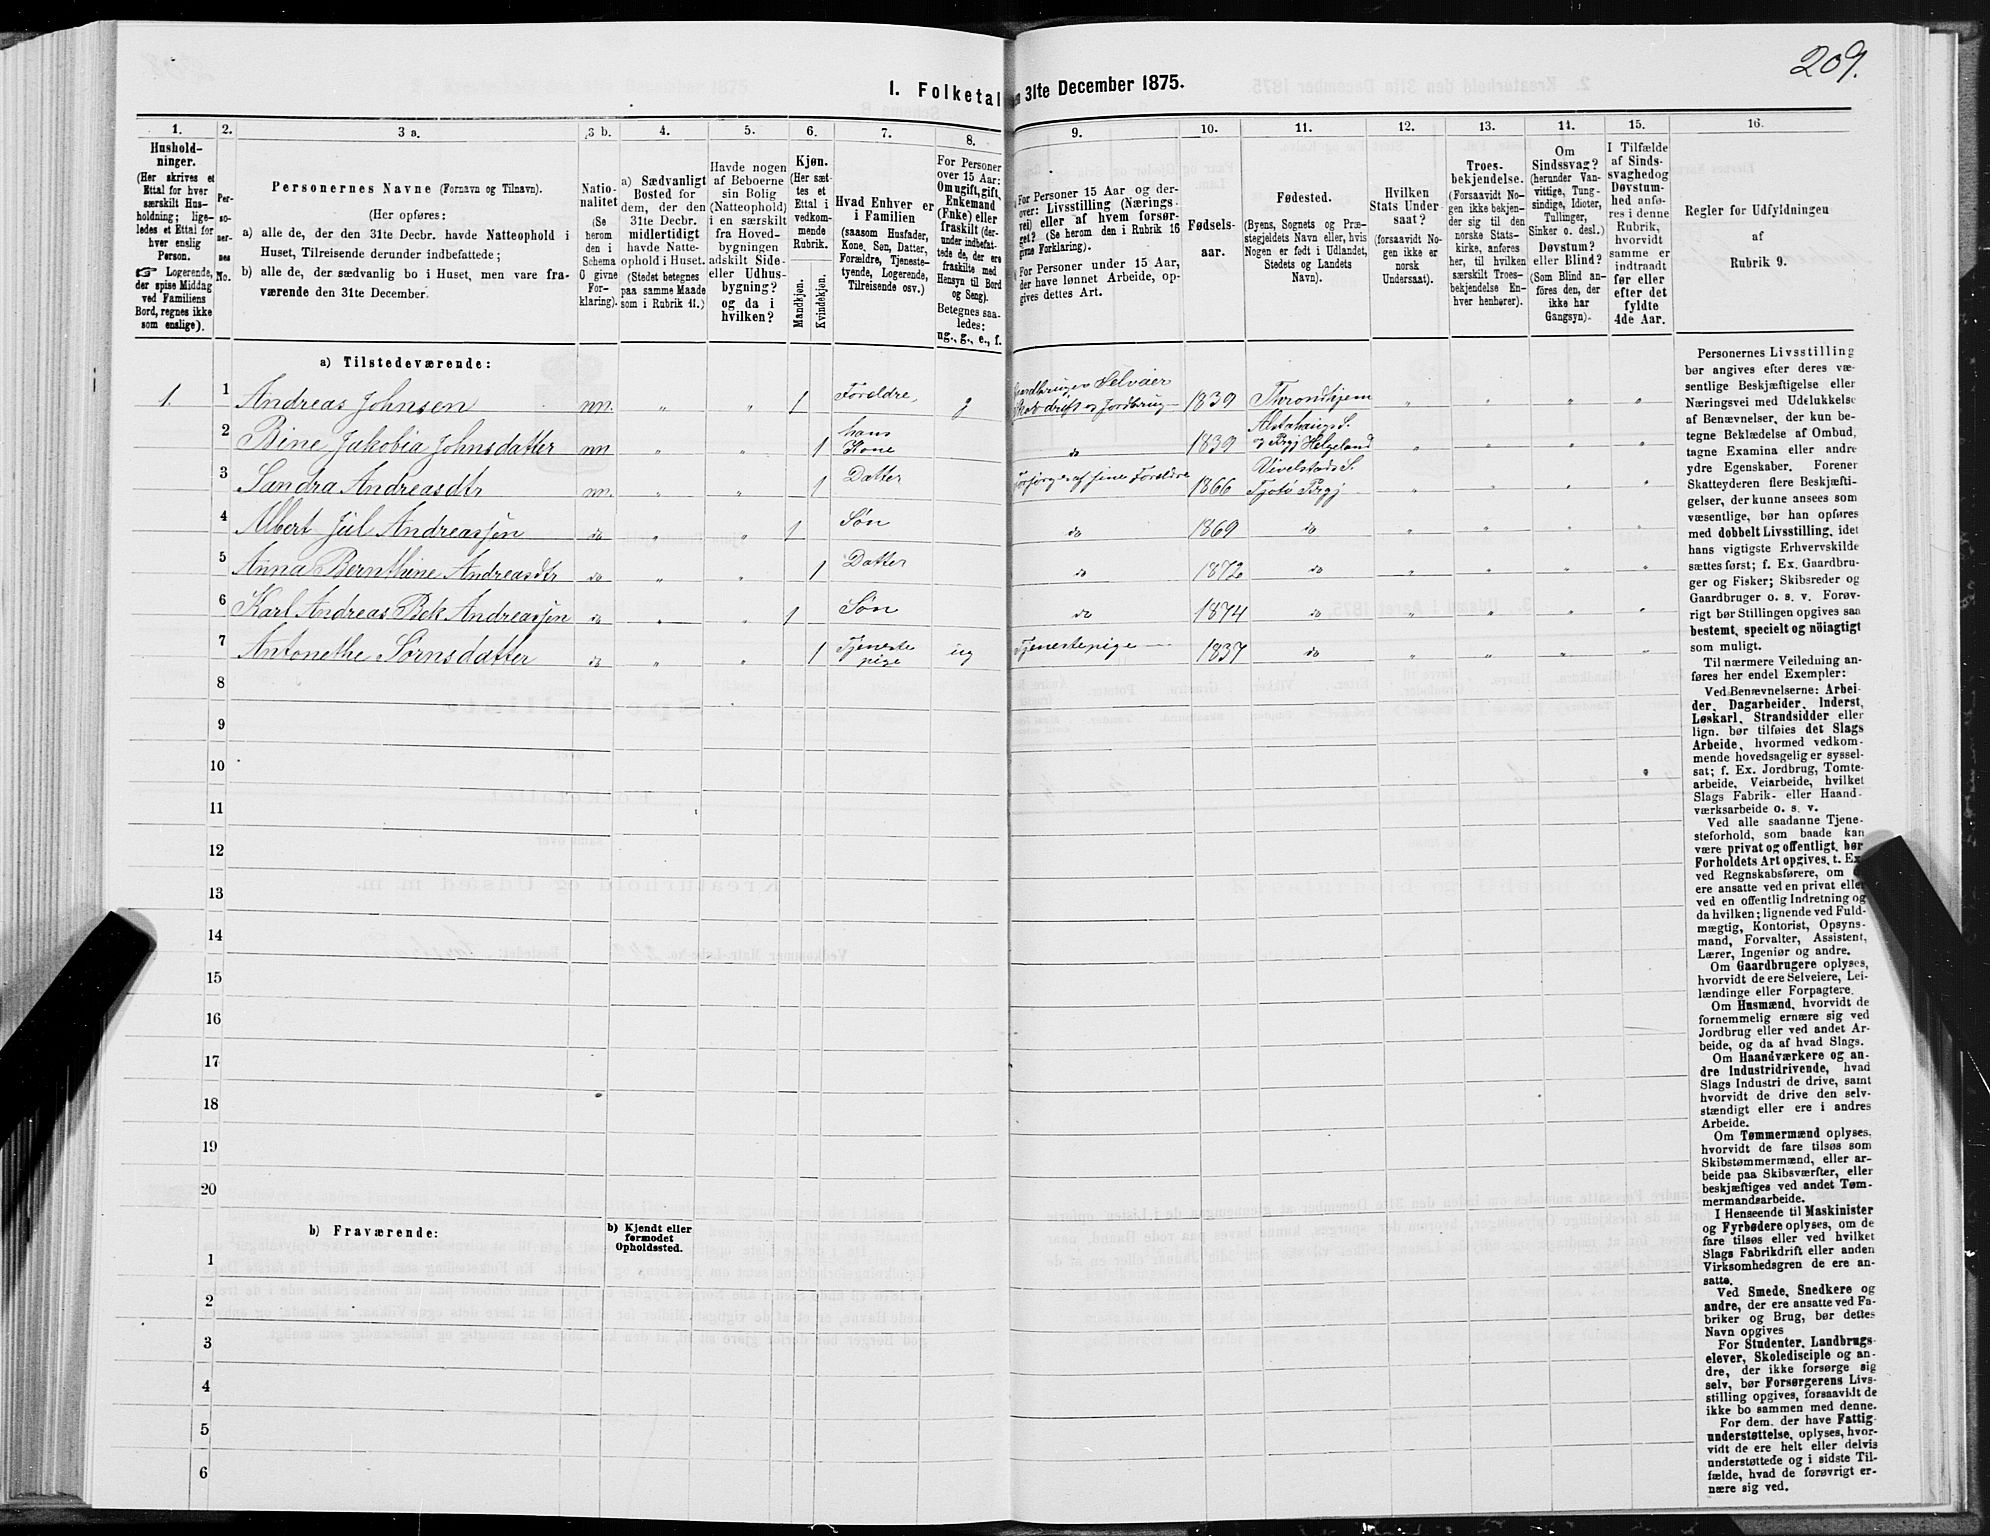 209.
1. Folketal
en 31te December 1875.
1.
2.
3 a.
3 b.
4.
5.
6.
7.
8.
9.
10.
11.
12.
13.
14.
15.
16.
Hushold-
ninger.
(Her skrives et
Ettal for hver
særskilt Hus-
holdning; lige-
ledes et Ettal for
hver enslig
Person.
☞ Logerende,
der spise Middag
ved Familiens
Bord, regnes ikke
som enslige).
Per-
so-
ner-
nes
No.
Personernes Navne (Fornavn og Tilnavn).
(Her opføres:
a) alle de, der den 31te Decbr. havde Natteophold i
Huset, Tilreisende derunder indbefattede;
b) alle de, der sædvanlig bo i Huset, men vare fra-
værende den 31te December.
Natio-
nalitet
(Se
herom
den i
Schema
O givne
For-
klaring).
a) Sædvanligt
Bosted for
dem, der den
31te Decbr.
midlertidigt
havde Natte-
ophold i Huset.
(Stedet betegnes
paa samme Maade
som i Rubrik 11.)
Havde nogen
af Beboerne
sin Bolig
(Natteophold)
i en særskilt
fra Hoved-
bygningen
adskilt Side-
eller Udhus-
bygning?
og da i
hvilken?
Kjøn.
(Her sæt-
tes et
Ettal i
vedkom-
mende
Rubrik.
Mandkjøn.
Kvindekjøn.
Hvad Enhver er
i Familien
(saasom Husfader,
Kone, Søn, Datter,
Forældre, Tjeneste-
tyende, Logerende,
Tilreisende osv.)
For Personer
over 15 Aar:
Omugift, gift,
Enkemand
(Enke) eller
fraskilt (der-
under indbefat-
tede de, der ere
fraskilte med
Hensyn til Bord
og Seng).
Betegnes saa-
ledes:
ug., g., e., f.
For Personer 15 Aar og der-
over: Livsstilling (Nærings-
vei) eller af hvem forsør-
get? (Se herom den i Rubrik 16
givne Forklaring).
For Personer under 15 Aar,
der have lønnet Arbeide, op-
gives dettes Art.
Fødsels-
aar.
Fødested.
(Byens, Sognets og Præ-
stegjeldets Navn eller, hvis
Nogen er født i Udlandet,
Stedets og Landets
Navn).
Hvilken
Stats Under
saat?
(forsaavidt No-
gen ikke er
norsk
Undersaat).
Troes-
bekjendelse.
(Forsaavidt No-
gen ikke bekjen-
der sig til den
norske Stats-
kirke, anføres
her, til hvilken
særskilt Troes-
bekjendelse En-
hver henhører).
Om
Sindssvag?
(herunder Van-
vittige, Tung-
sindige, Idioter,
Tullinger,
Sinker o. desl.)
Døvstum?
eller Blind?
(Som Blind an-
føres den, der
ikke har
Gangsyn).
I Tilfælde
af Sinds-
svaghed og
Døvstum-
hed anfø-
res i denne
Rubrik,
hvorvidt
samme er
indtraadt
før eller
efter det
fyldte
4de Aar.
Regler for Udfyldningen
af
Rubrik 9.
a) Tilstedeværende:
1. 1 Andreas Johnsen nn. " " 1 Forældre, g Gaardbruger Selveier 1839 Throndhjem " " " "
2 Bine Jakobia Johnsdatter nn " " 1 hans Kone do 1839 Alstahaugs S. og Prgj Helgeland " " " "
3 Sandra Andreasdtr nn. " " 1 Datter forsørges af sine Forældre 1866 Vivelstads S. Tjøtø Prgj " " " "
4 Albert Jul Andreassen do " " 1 Søn do 1869 do " " " "
5 Anna Bernthine Andreasdtr do " " 1 Datter do 1872 do " " " "
6 Karl Andreas Bek Andreassen do " " 1 Søn do 1874 do " " " "
7 Antonethe Sørnsdatter do " " 1 Tjeneste pige ug Tjenestepige 1837 do " " " "
8
9
10
11
12
13
14
15
16
17
18
19
20
b) Fraværende:
b) Kjendt eller
formodet
Opholdssted.
1
2
3
4
5
6
Personernes Livsstilling
bør angives efter deres væ-
sentlige Beskjæftigelse eller
Næringsvei med Udelukkelse
af Benævnelser, der kun be-
tegne Beklædelse af Ombud,
tagne Examina eller andre
ydre Egenskaber. Forener
Skatteyderen flere Beskjæfti-
gelser, der kunne ansees som
væsentlige, bør han opføres
med dobbelt Livsstilling, idet
hans vigtigste Erhvervskilde
sættes først; f. Ex. Gaardbru-
ger og Fisker; Skibsreder og
Gaardbruger o. s. v. Forøv-
rigt bør Stillingen opgives saa
bestemt, specielt og nöiagtigt
som muligt.
Til nærmere Veiledning an-
føres her endel Exempler:
Ved Benævnelserne: Arbei-
der, Dagarbeider, Inderst,
Løskarl, Strandsidder eller
lign. bør tilføies det Slags
Arbeide, hvormed vedkom-
mende hovedsagelig er syssel-
sat; f. Ex. Jordbrug, Tomte-
arbeide, Veiarbeide, hvilket
Slags Fabrik- eller Haand-
værksarbeide o. s. v.
Ved alle saadanne Tjene-
steforhold, som baade kan
være privat og offentligt, bør
Forholdets Art opgives, t. Ex.
ved Regnskabsførere, om de
ere ansatte ved en privat eller
ved en offentlig Indretning og
da hvilken; lignende ved Fuld-
mægtig, Kontorist, Opsyns-
mand, Forvalter, Assistent,
Lærer, Ingeniør og andre.
Om Gaardbrugere oplyses,
hvorvidt de ere Selveiere, Lei-
lændinge eller Forpagtere.
Om Husmænd, hvorvidt de
fornemmelig ernære sig ved
Jordbrug eller ved andet Ar-
beide, og da af hvad Slags.
Om Haandværkere og an-
dre Industridrivende, hvad
Slags Industri de drive, samt
hvorvidt de drive den selv-
stændigt eller ere i andres
Arbeide.
Om Tømmermænd oplyses,
hvorvidt de fare tilsøs som
Skibstømmermænd, eller ar-
beide paa Skibsværfter, eller
beskjæftiges ved andet Tøm-
mermandsarbeide.
I Henseende til Maskinister
og Fyrbødere oplyses, om de
fare tilsøs eller ved hvilket
Slags Fabrikdrift eller anden
Virksomhedsgren de ere an-
satte.
Ved Smede, Snedkere og
andre, der ere ansatte ved Fa-
briker og Brug, bør dettes
Navn opgives
For Studenter, Landbrugs-
elever, Skoledisciple og an-
dre, der ikke forsørge sig
selv, bør Forsørgerens Livs-
stilling opgives, forsaavidt de
ikke bo sammen med denne.
For dem, der have Fattig-
understøttelse, oplyses, hvor-
vidt de ere helt eller delvis
understøttede og i sidste Til-
fælde, hvad de forøvrigt er-
nære sig ved.